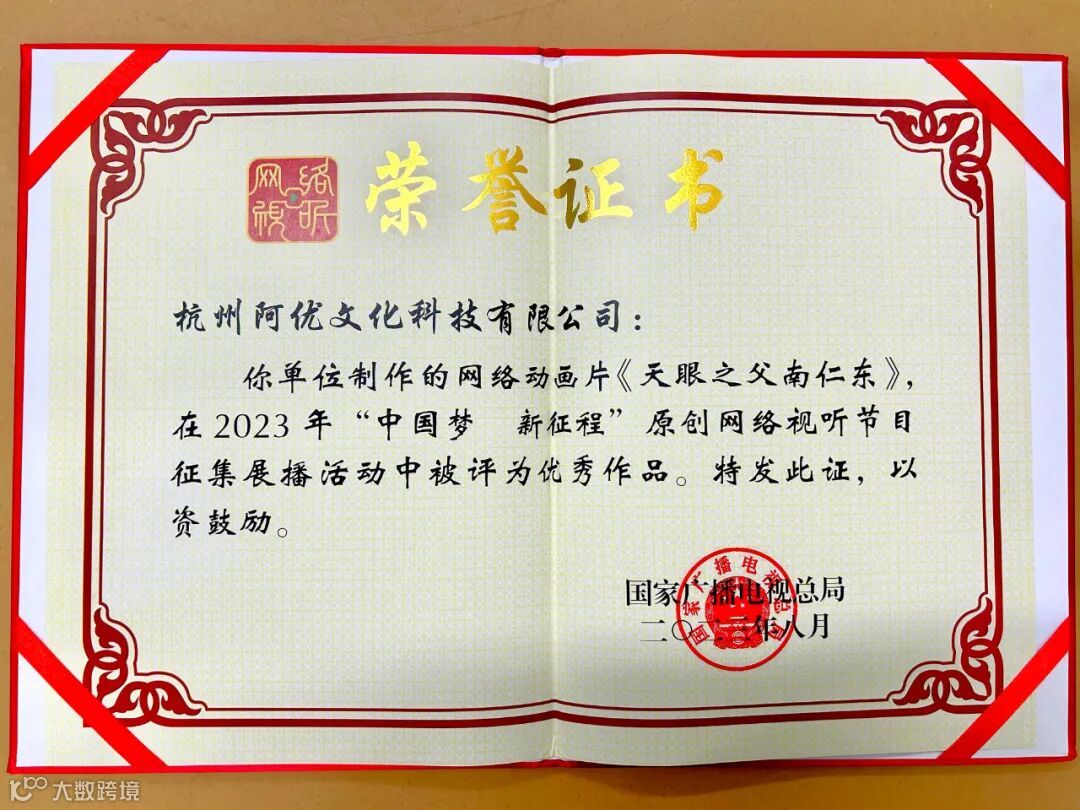 网络视听
荣誉证书
杭州阿优文化科技有限公司：
你单位制作的网络动画片《天眼之父南仁东》，
在2023年“中国梦 新征程”原创网络视听节目
征集展播活动中被评为优秀作品。特发此证，以
资鼓励。
国家广播电视总局
国家广播电视总局
二〇二三年八月
大数跨境